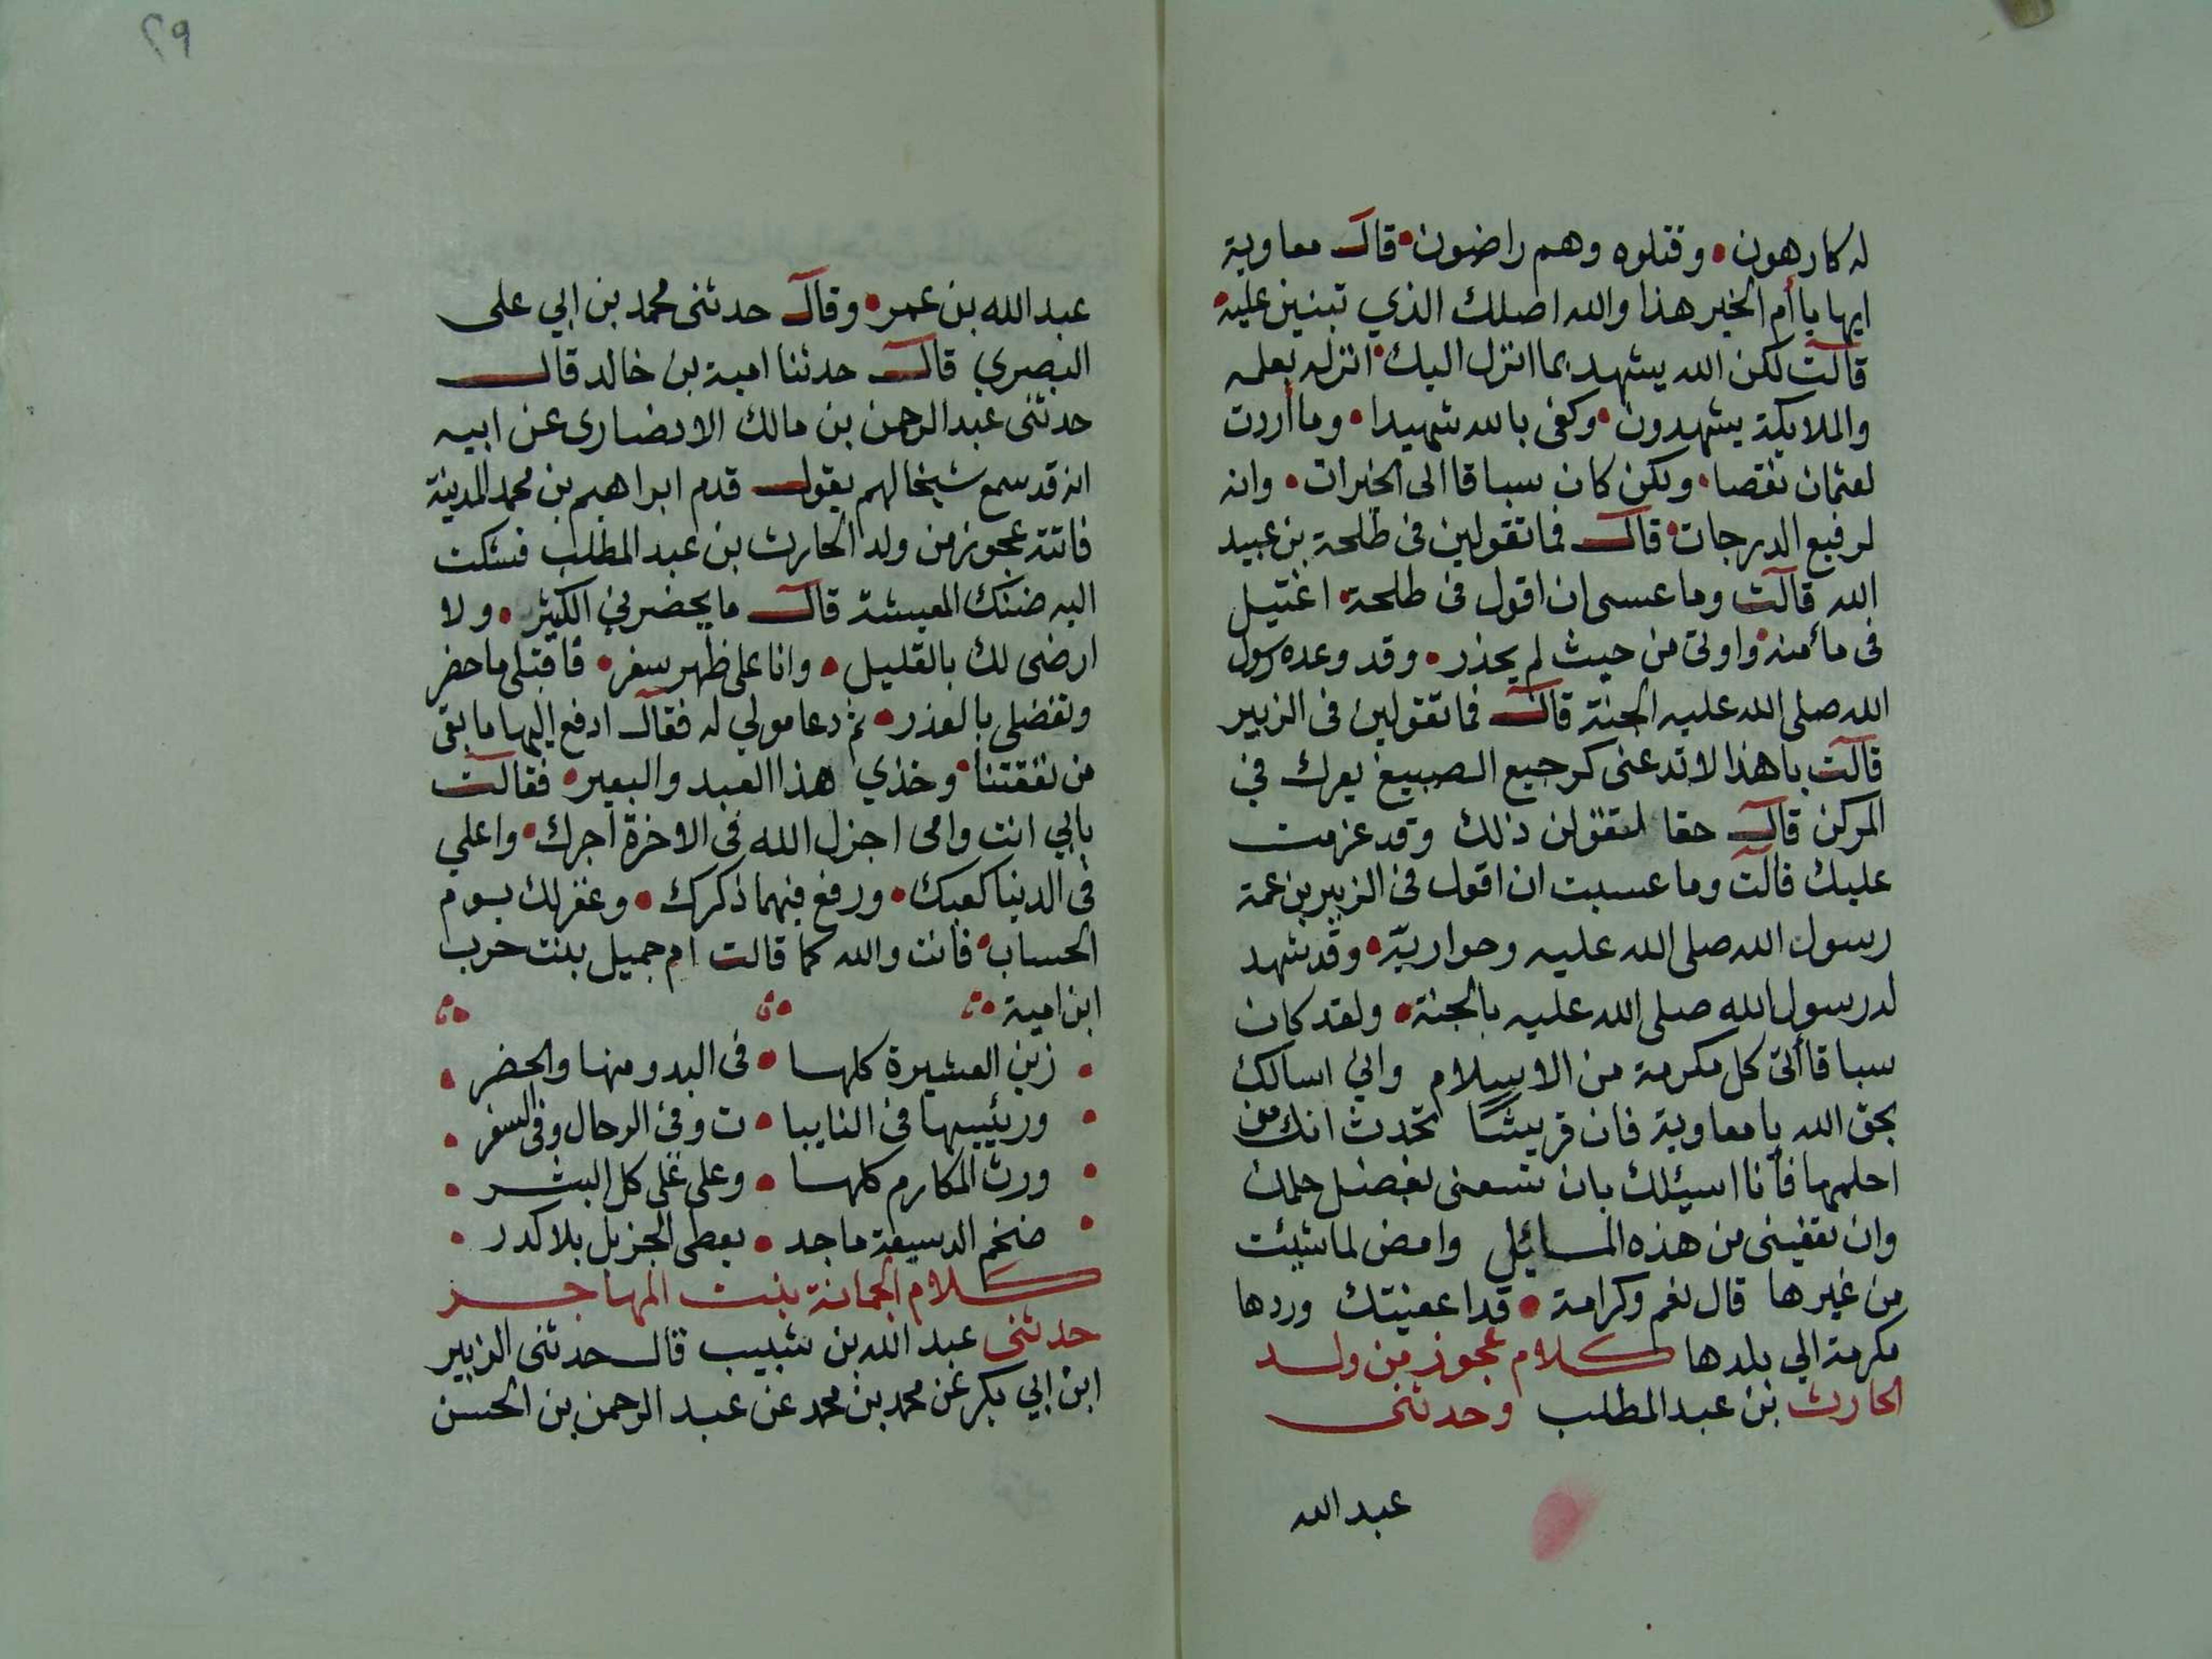 له كارهون • وقتلوه وهم راضون • قال معاوية
ايها يا أم الخير هذا والله اصلك الذي تبنين عليه •
قالت لكن الله يشهد بما انزل اليك • انزله بعلمه
والملايكة يشهدون • وكفى بالله شهيدا • وما أردت
لعثمان نقصا • ولكن كان سباقا الى الخيرات • وانه
لرفيع الدرجات • قال فما تقولين فى طلحة بن عبيد
الله قالت وما عسى ان اقول فى طلحة • اغتيل
فى مأمنه • واوتى من حيث لم يحذر • وقد وعده رسول
الله صلى الله عليه الجنة قال فما تقولين فى الزبير
قالت يا هذا لا تدعنى كرجيع الصبيغ يعرك في
المركن قال حقا لتقولن ذلك وقد عزمت
عليك قالت وما عسيت ان اقول فى الزبير بن عمة
رسول الله صلى الله عليه وحواريّه • وقد شهد
له رسول الله صلى الله عليه بالجنة • ولقد كان
سباقا ألى كل مكرمة من الاسلام واني اسالك
بحق الله يا معاوية فان قريشا تحدث انك من
احلمها فأنا اسيئلك بان تسعنى بفضل حلمك
وان تعفينى من هذه المسائل وامض لما شيئت
من غيرها قال نعم وكرامة • قد اعفيتك وردها
مكرمة الي بلدها كلام عجوز من ولد
الحارث بن عبد المطلب وحدثنى
عبد الله
٢٩
عبد الله بن عمر • وقال حدثنى محمد بن ابي على
البصري قال حدثنا امية بن خالد قال
حدثنى عبد الرحمن بن مالك الانصارى عن ابيه
انه قد سمع شيخا لهم يقول قدم ابراهيم بن محمد المدينة
فاتته عجوز من ولد الحارث بن عبد المطلب فشكت
اليه ضنك المعيشة قال ما يحضرني الكثير • ولا
ارضى لك بالقليل • وانا على ظهر سفر • فاقبلى ما حضر
وتفضلى بالعذر • ثم دعا مولي له فقال ادفع اليها ما بقى
من نفقتنا • وخذي هذا العبد والبعير • فقالت
بابي انت وامى اجزل الله فى الاخرة اجرك • واعلي
فى الدنيا كعبك • ورفع فيهما ذكرك • وغفر لك يوم
الحساب • فانت والله كما قالت ام جميل بنت حرب
ابن امية
• زين العشيرة كلها • فى البدو منها والحضر •
• ورئييسها فى النايبا • ت وفى الرحال وفى السفر •
• ورث المكارم كلها • وعلى على كل البشر •
• ضخم الدسيعة ماجد • يعطى الجزيل بلا كدر •
كلام الجمانة بنت المهاجر
حدثنى عبد الله بن شبيب قال حدثنى الزبير
ابن ابي بكر عن محمد بن محمد عن عبد الرحمن بن الحسن